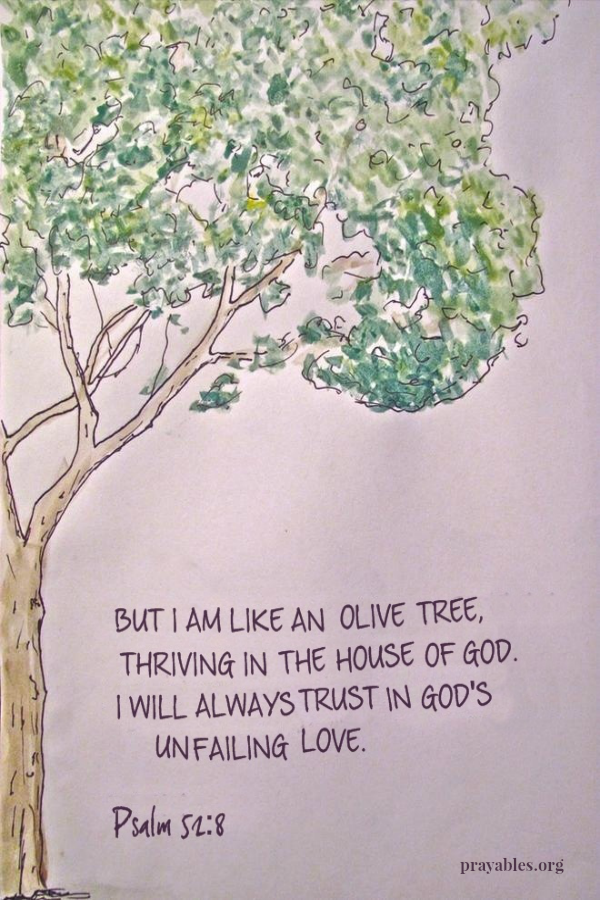 BUT I AM LIKE AN OLIVE TREE,
THRIVING IN THE HOUSE OF GOD.
I WILL ALWAYS TRUST IN GOD'S
UNFAILING LOVE.
Psalm 52:8
prayables.org